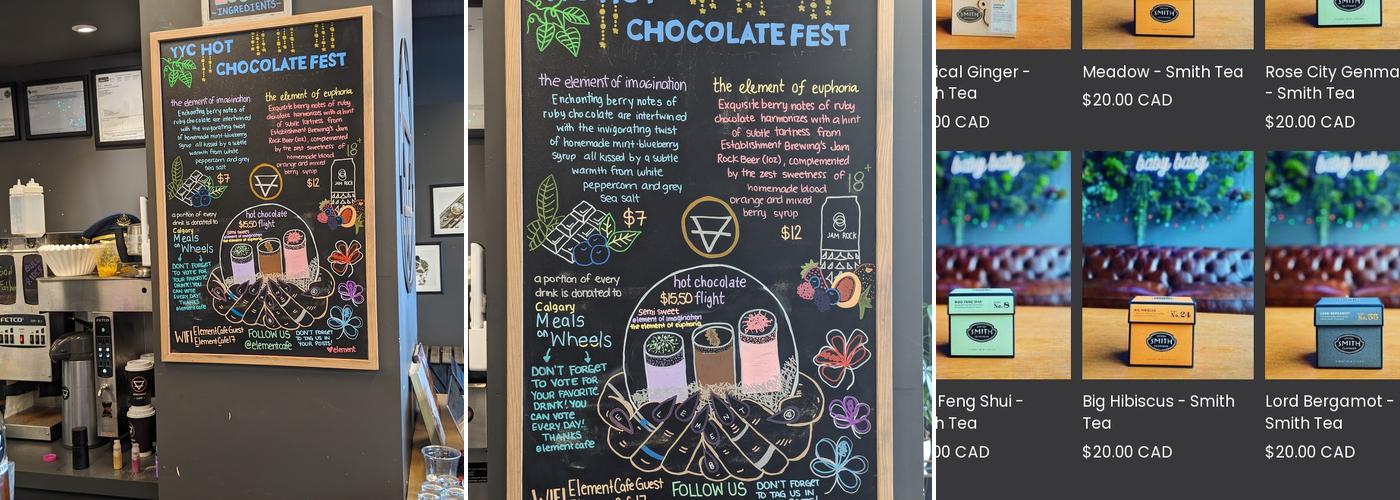 INGREDIENTS
YYC HOT
CHOCOLATE FEST
the element of imagination
Enchanting berry notes of
ruby chocolate are intertwined
with the invigorating twist
of homemade mint-blueberry
syrup all kissed by a subtle
warmth from white
peppercorn and grey
sea salt
$7
the element of euphoria
Exquisite berry notes of ruby
chocolate harmonizes with a hint
of subtle tartness from
Establishment Brewing's Jam
Rock Beer (1oz), complemented
by the zest sweetness of
homemade blood
orange and mixed
berry syrup
18+
$12
JAM ROCK
a portion of every
drink is donated to
Calgary
Meals
on Wheels
DON'T FORGET
TO VOTE FOR
YOUR FAVORITE
DRINK! YOU
CAN VOTE
EVERY DAY!
THANKS
elementcafe
hot chocolate
$15.50 flight
Semi sweet
element of imagination
the element of euphoria
WIFI ElementCafeGuest
ElementCafe17
FOLLOW US
@elementcafe
DON'T FORGET
TO TAG US IN
YOUR POSTS!
element
FETCO
CHOCOLATE FEST
the element of imagination
Enchanting berry notes of
ruby chocolate are intertwined
with the invigorating twist
of homemade mint-blueberry
syrup all kissed by a subtle
warmth from white
peppercorn and grey
sea salt
$7
the element of euphoria
Exquisite berry notes of ruby
chocolate harmonizes with a hint
of subtle tartness from
Establishment Brewing's Jam
Rock Beer (1oz), complemented
by the zest sweetness of
homemade blood
orange and mixed
berry syrup
18+
$12
JAM ROCK
a portion of every
drink is donated to
Calgary
Meals
on Wheels
DON'T FORGET
TO VOTE FOR
YOUR FAVORITE
DRINK! YOU
CAN VOTE
EVERY DAY!
THANKS
elementcafe
hot chocolate
$15.50 flight
Semi sweet
element of imagination
the element of euphoria
E L E M E N T
WIFI ElementCafeGuest
FOLLOW US
DON'T FORGET
TO TAG US IN
SMITH
SMITH
SMITH
ical Ginger -
h Tea
00 CAD
Meadow - Smith Tea
$20.00 CAD
Rose City Genma
- Smith Tea
$20.00 CAD
baby baby
baby baby
baby baby
No. 8
SMITH
BIG HIBISCUS No. 24
SMITH
LORD BERGAMOT No. 55
SMITH
Feng Shui -
h Tea
00 CAD
Big Hibiscus - Smith
Tea
$20.00 CAD
Lord Bergamot -
Smith Tea
$20.00 CAD